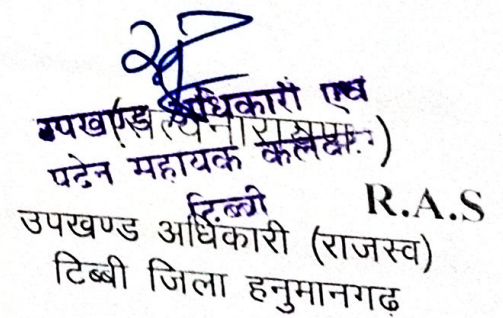 उपखण्ड अधिकारी एवं
(सत्यनारायण)
पदेन सहायक कलक्टर
टिब्बी
R.A.S
उपखण्ड अधिकारी (राजस्व)
टिब्बी जिला हनुमानगढ़